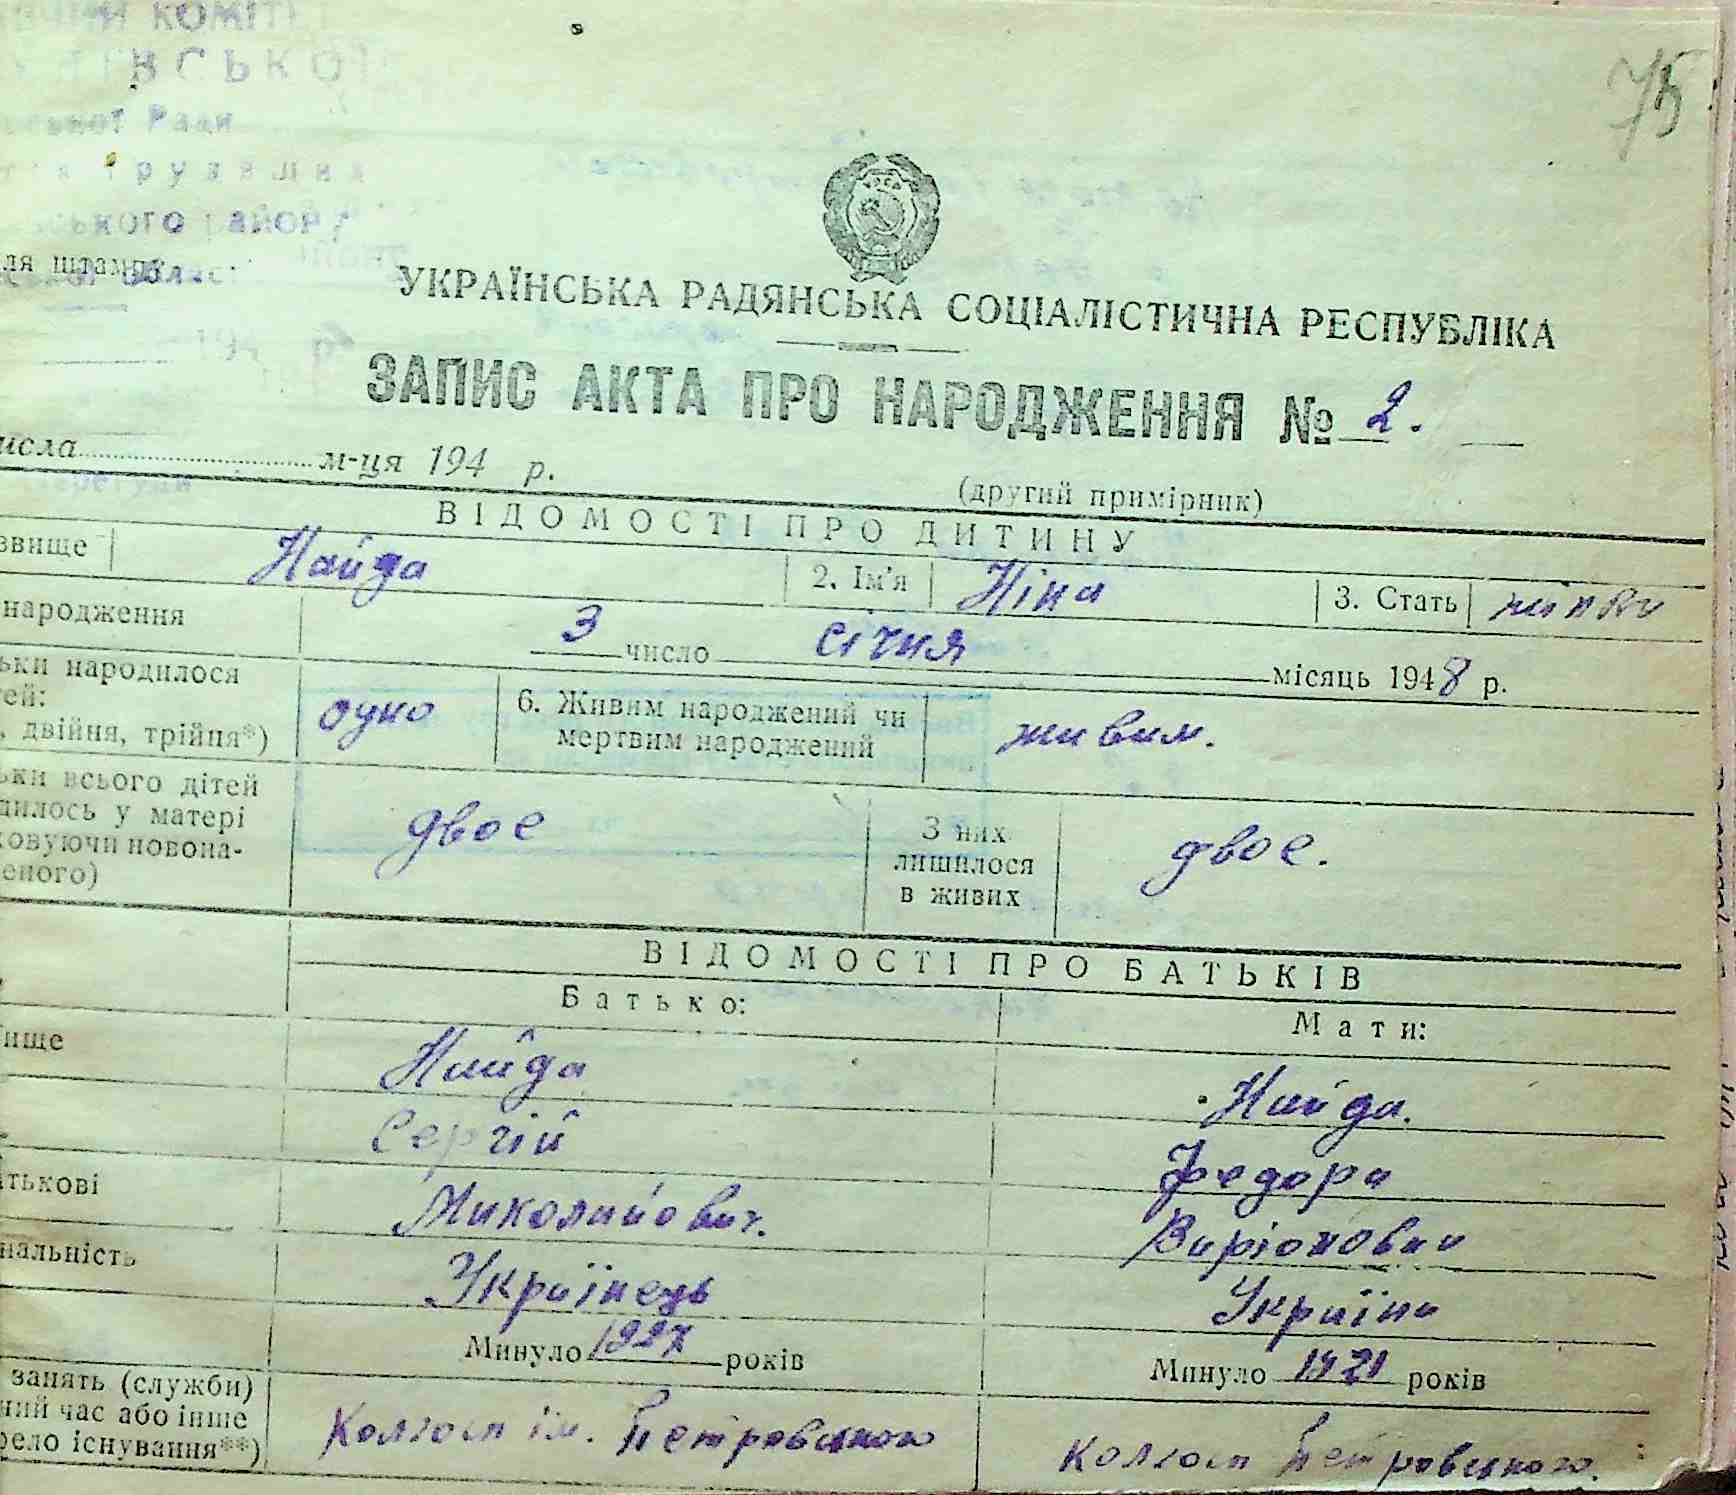 КОМІТЕТ
ІВСЬКОЇ
Ради
трудящих
ського району
ля штампу
75
УКРАЇНСЬКА РАДЯНСЬКА СОЦІАЛІСТИЧНА РЕСПУБЛІКА
194
ЗАПИС АКТА ПРО НАРОДЖЕННЯ № 2.
исла м-ця 194 р.
(другий примірник)
ВІДОМОСТІ ПРО ДИТИНУ
звище Найда 2. Ім’я Ніна 3. Стать
народження 3 число січня місяць 1948 р.
ьки народилося
тей:
, двійня, трійня*)
одно
6. Живим народжений чи
мертвим народжений
живим.
ьки всього дітей
дилось у матері
ховуючи новона-
еного)
двое
З них
лишилося
в живих
двое.
ВІДОМОСТІ ПРО БАТЬКІВ
Батько: Мати:
ище Найда Найда.
Сергій Федора
атькові Миколайович.
нальність Українець Україн
Минуло 1927 років Минуло 1921 років
занять (служби)
ний час або інше
рело існування**)
Колгосп ім. Петровського
Колгосп Петровського.